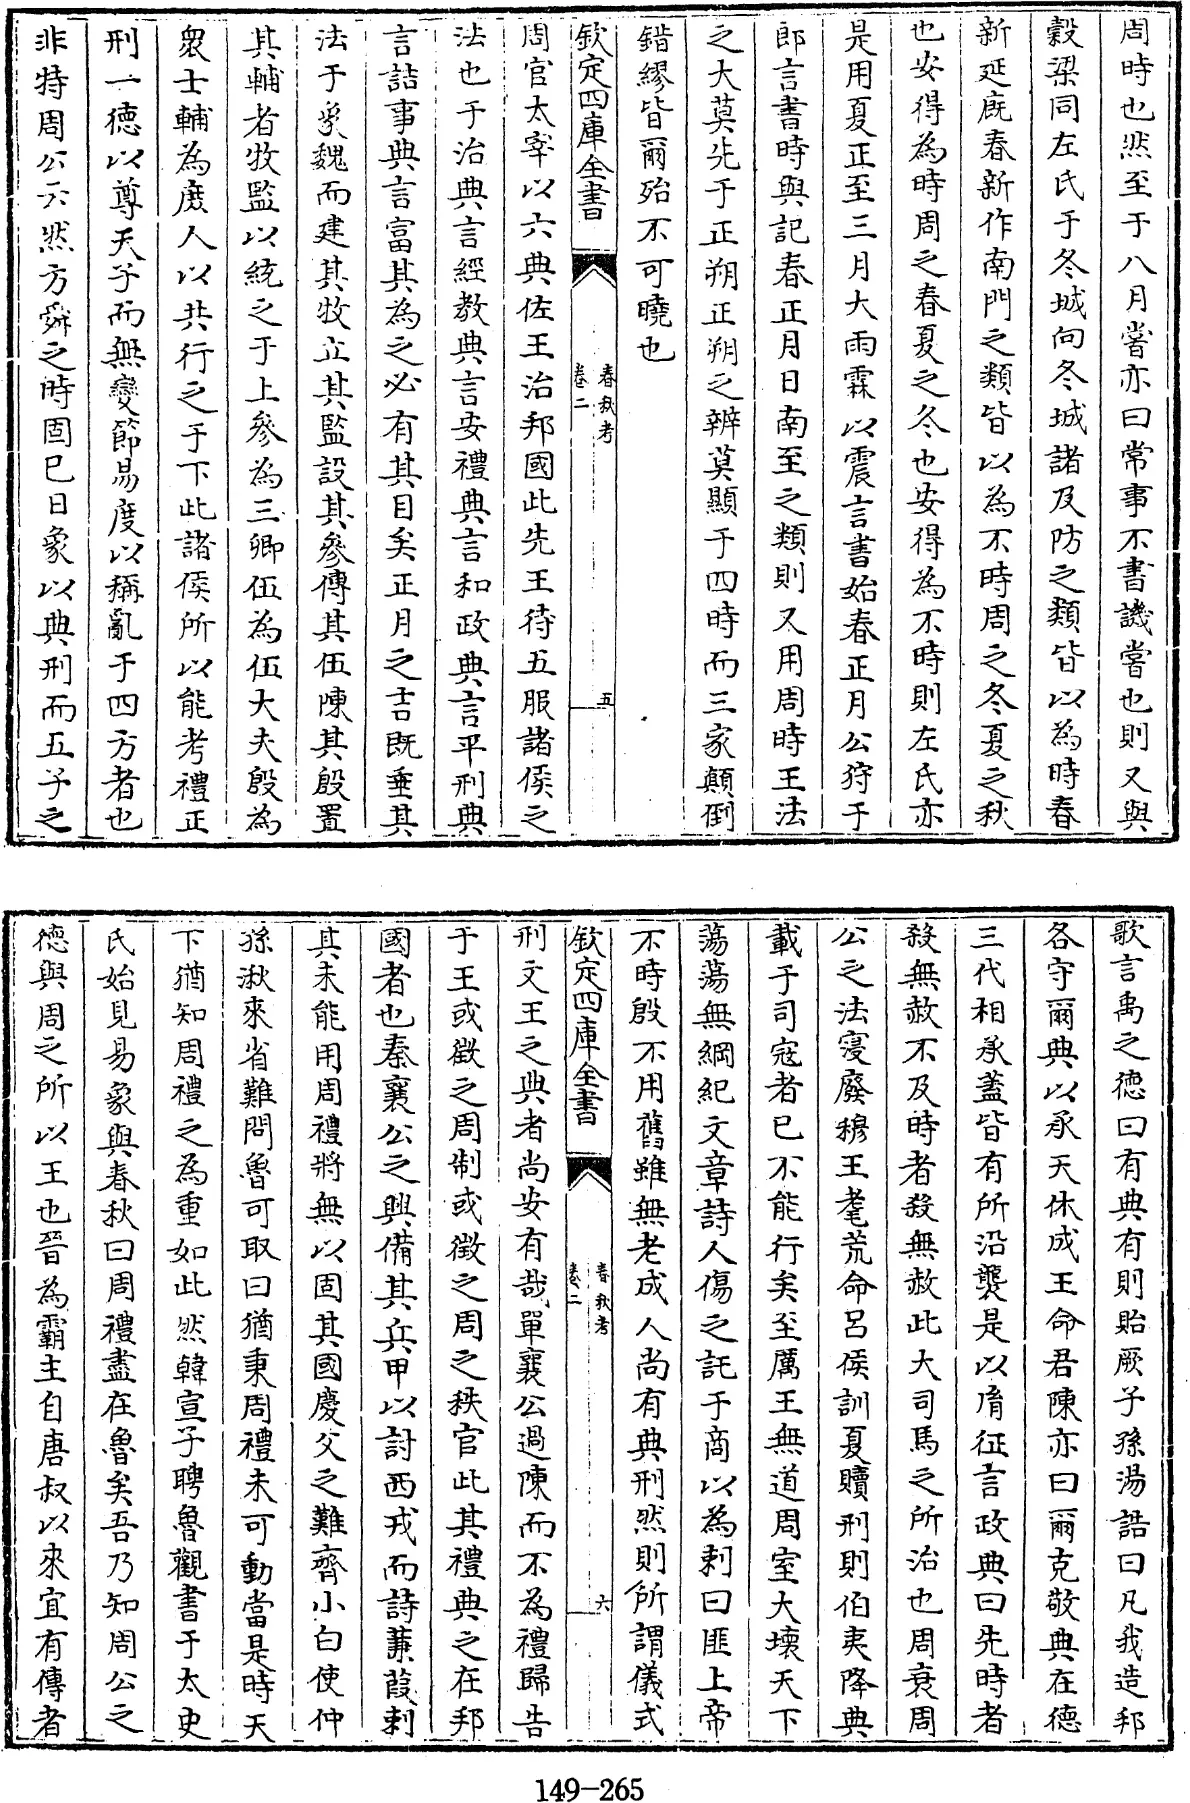 周時也然至于八月嘗亦曰常事不書譏嘗也則又與
穀梁同左氏于冬城向冬城諸及防之類皆以為時春
新延廐春新作南門之類皆以為不時周之冬夏之秋
也安得為時周之春夏之冬也安得為不時則左氏亦
是用夏正至三月大雨霖以震言書始春正月公狩于
郎言書時與記春正月日南至之類則又用周時王法
之大莫先于正朔正朔之辨莫顯于四時而三家顛倒
錯繆皆爾殆不可曉也
欽定四庫全書
春秋考
卷二
五
周官太宰以六典佐王治邦國此先王待五服諸侯之
法也于治典言經教典言安禮典言和政典言平刑典
言詰事典言富其為之必有其目矣正月之吉既垂其
法于象魏而建其牧立其監設其參傅其伍陳其殷置
其輔者牧監以統之于上參為三卿伍為伍大夫殷為
衆士輔為庶人以共行之于下此諸侯所以能考禮正
刑一徳以尊天子而無變節易度以稱亂于四方者也
非特周公云然方舜之時固已曰象以典刑而五子之
歌言禹之徳曰有典有則貽厥子孫湯誥曰凡我造邦
各守爾典以承天休成王命君陳亦曰爾克敬典在德
三代相承蓋皆有所沿襲是以胤征言政典曰先時者
殺無赦不及時者殺無赦此大司馬之所治也周衰周
公之法寖廢穆王耄荒命呂侯訓夏贖刑則伯夷降典
載于司寇者已不能行矣至厲王無道周室大壊天下
蕩蕩無綱紀文章詩人傷之託于商以為刺曰匪上帝
不時殷不用舊雖無老成人尚有典刑然則所謂儀式
欽定四庫全書
春秋考
卷二
六
刑文王之典者尚安有哉單襄公過陳而不為禮歸告
于王或徵之周制或徵之周之秩官此其禮典之在邦
國者也秦襄公之興備其兵甲以討西戎而詩蒹葭刺
其未能用周禮將無以固其國慶父之難齊小白使仲
孫湫來省難問魯可取曰猶秉周禮未可動當是時天
下猶知周禮之為重如此然韓宣子聘魯觀書于太史
氏始見易象與春秋曰周禮盡在魯矣吾乃知周公之
徳與周之所以王也晉為霸主自唐叔以來宜有傳者
149-265